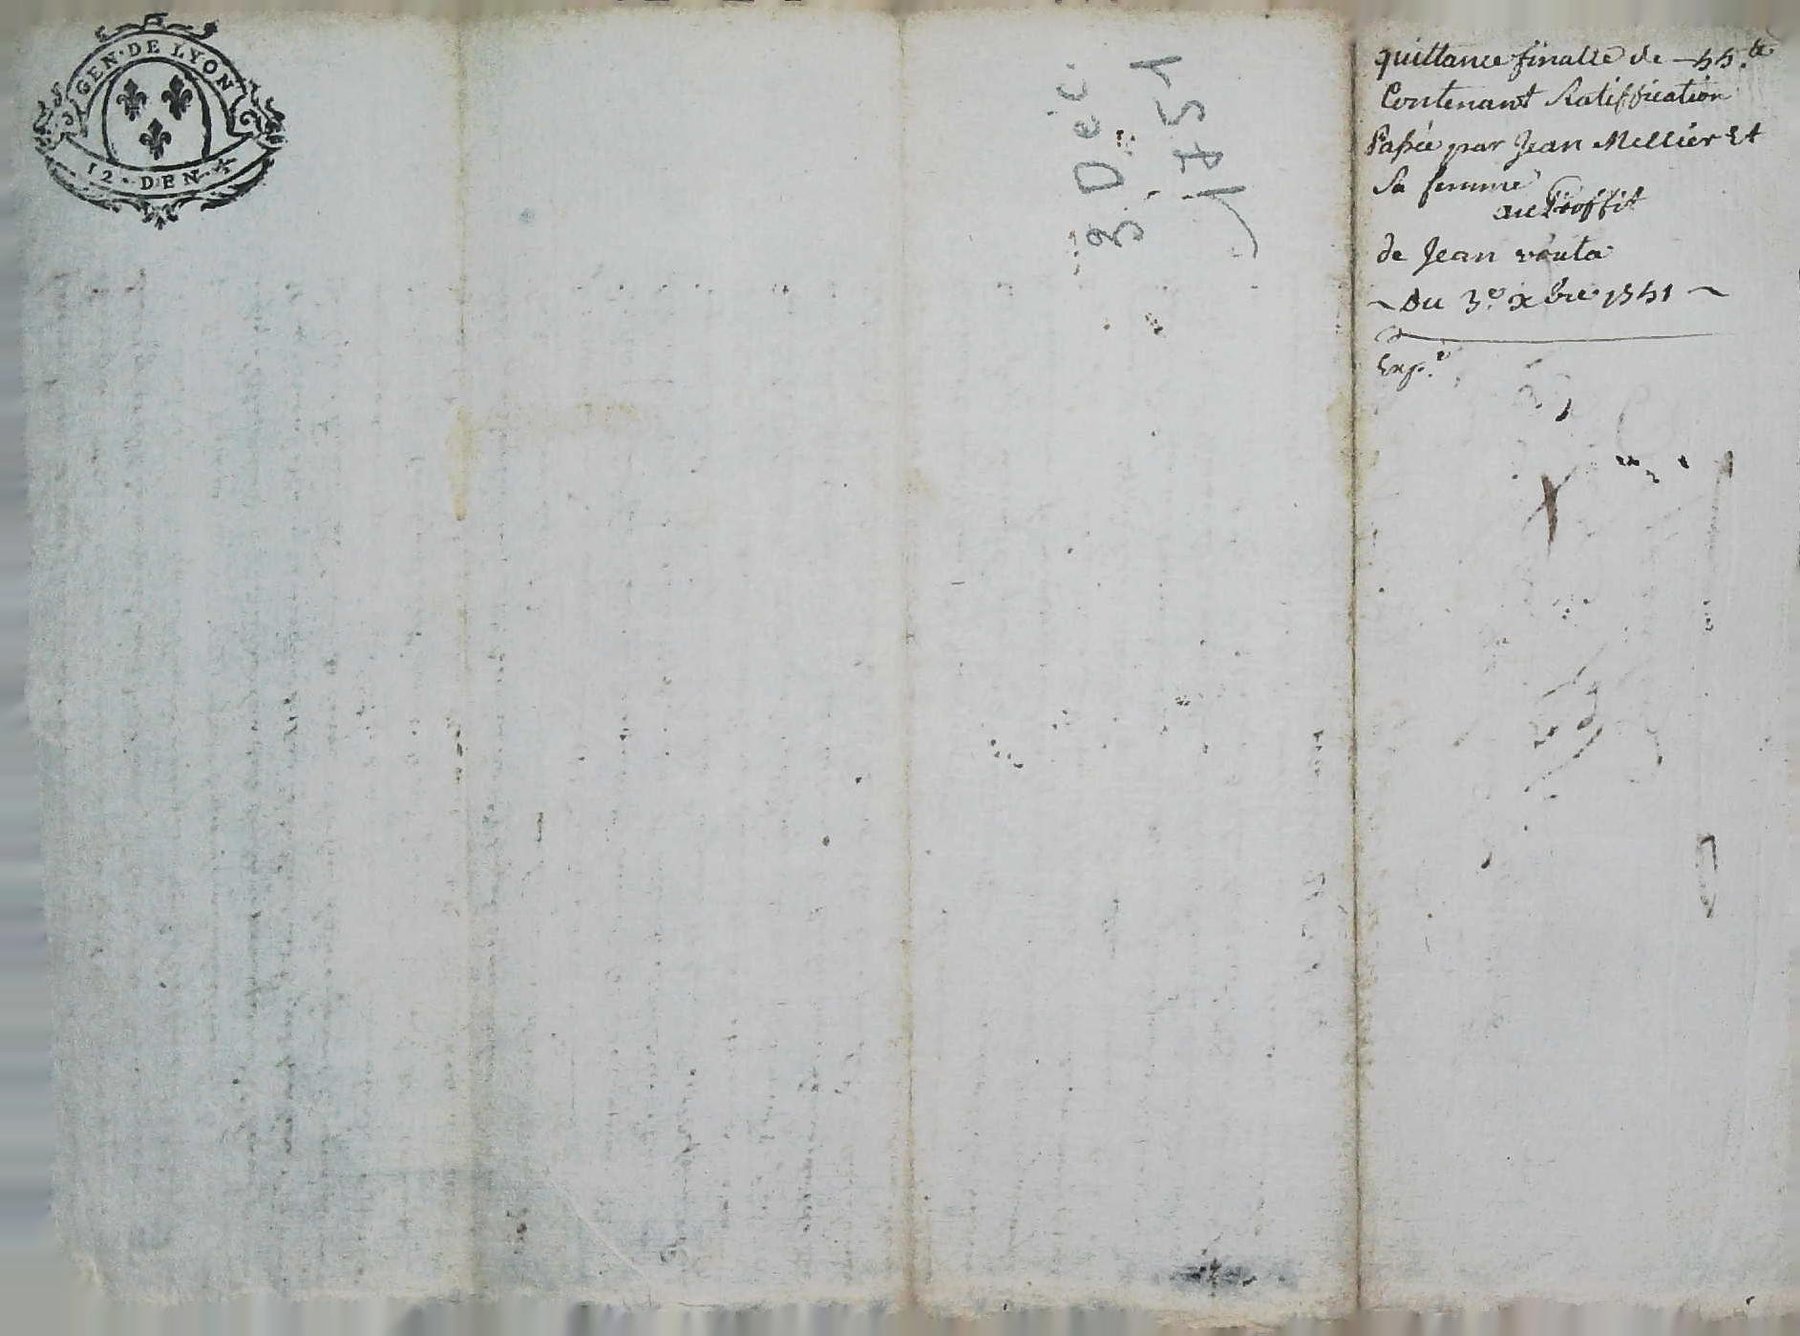 GEN · DE LYON
12 · DEN ·
3 Dec.
1751
quittance finalle de 55.#
Contenant Ratiffication
Passée par Jean Mellier Et
Sa femme
au Proffit
de Jean vouta
~ Du 3.e xbre 1751 ~
Exp.e